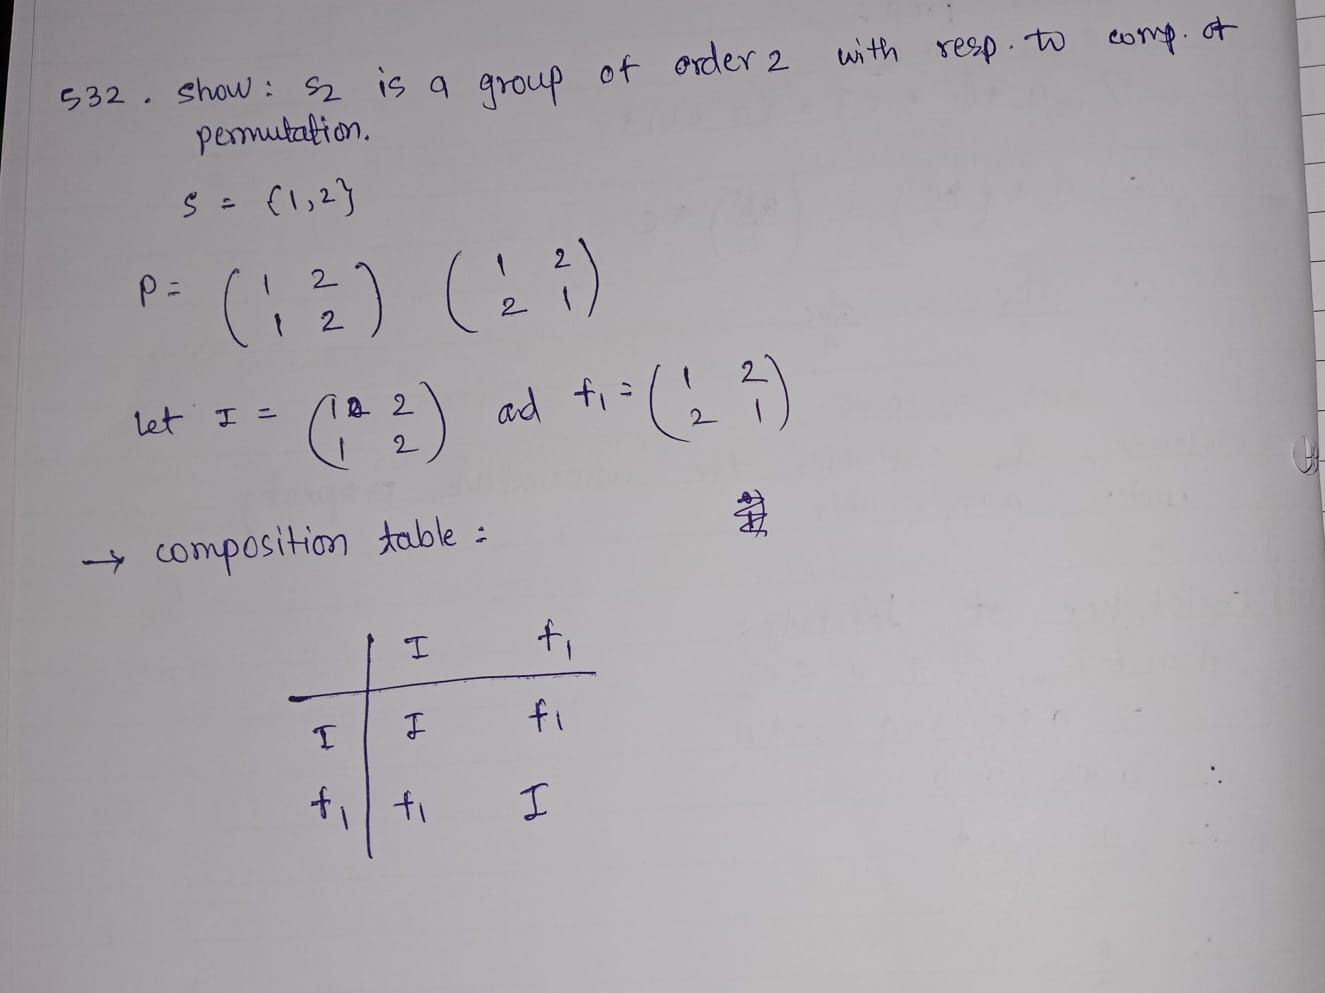 532. show: S2 is a group of order 2 with resp. to comp. of
permutation.
S = {1,2}
P = ( 1 2 ) ( 1 2 )
( 1 2 ) ( 2 1 )
Let I = ( 1 2 ) ad f1 = ( 1 2 )
( 1 2 ) ( 2 1 )
→ composition table :
I f1
I I f1
f1 f1 I